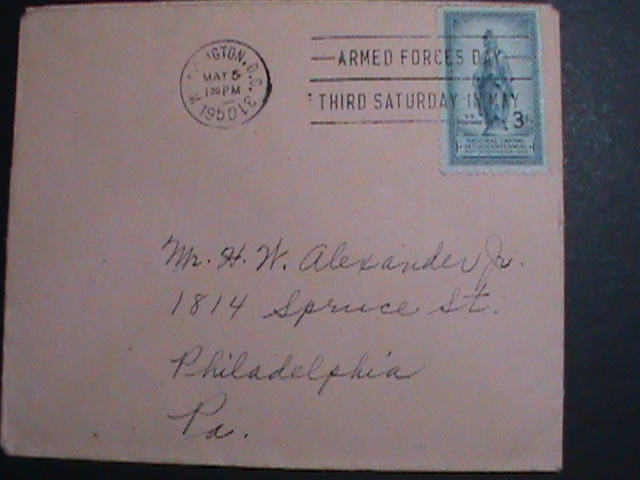 WASHINGTON, D.C. 31
MAY 5
1 30 PM
1950
ARMED FORCES DAY
THIRD SATURDAY IN MAY
3
NATIONAL CAPITAL
SESQUICENTENNIAL
Mr. H. W. Alexander Jr.
1814 Spruce St.
Philadelphia
Pa.